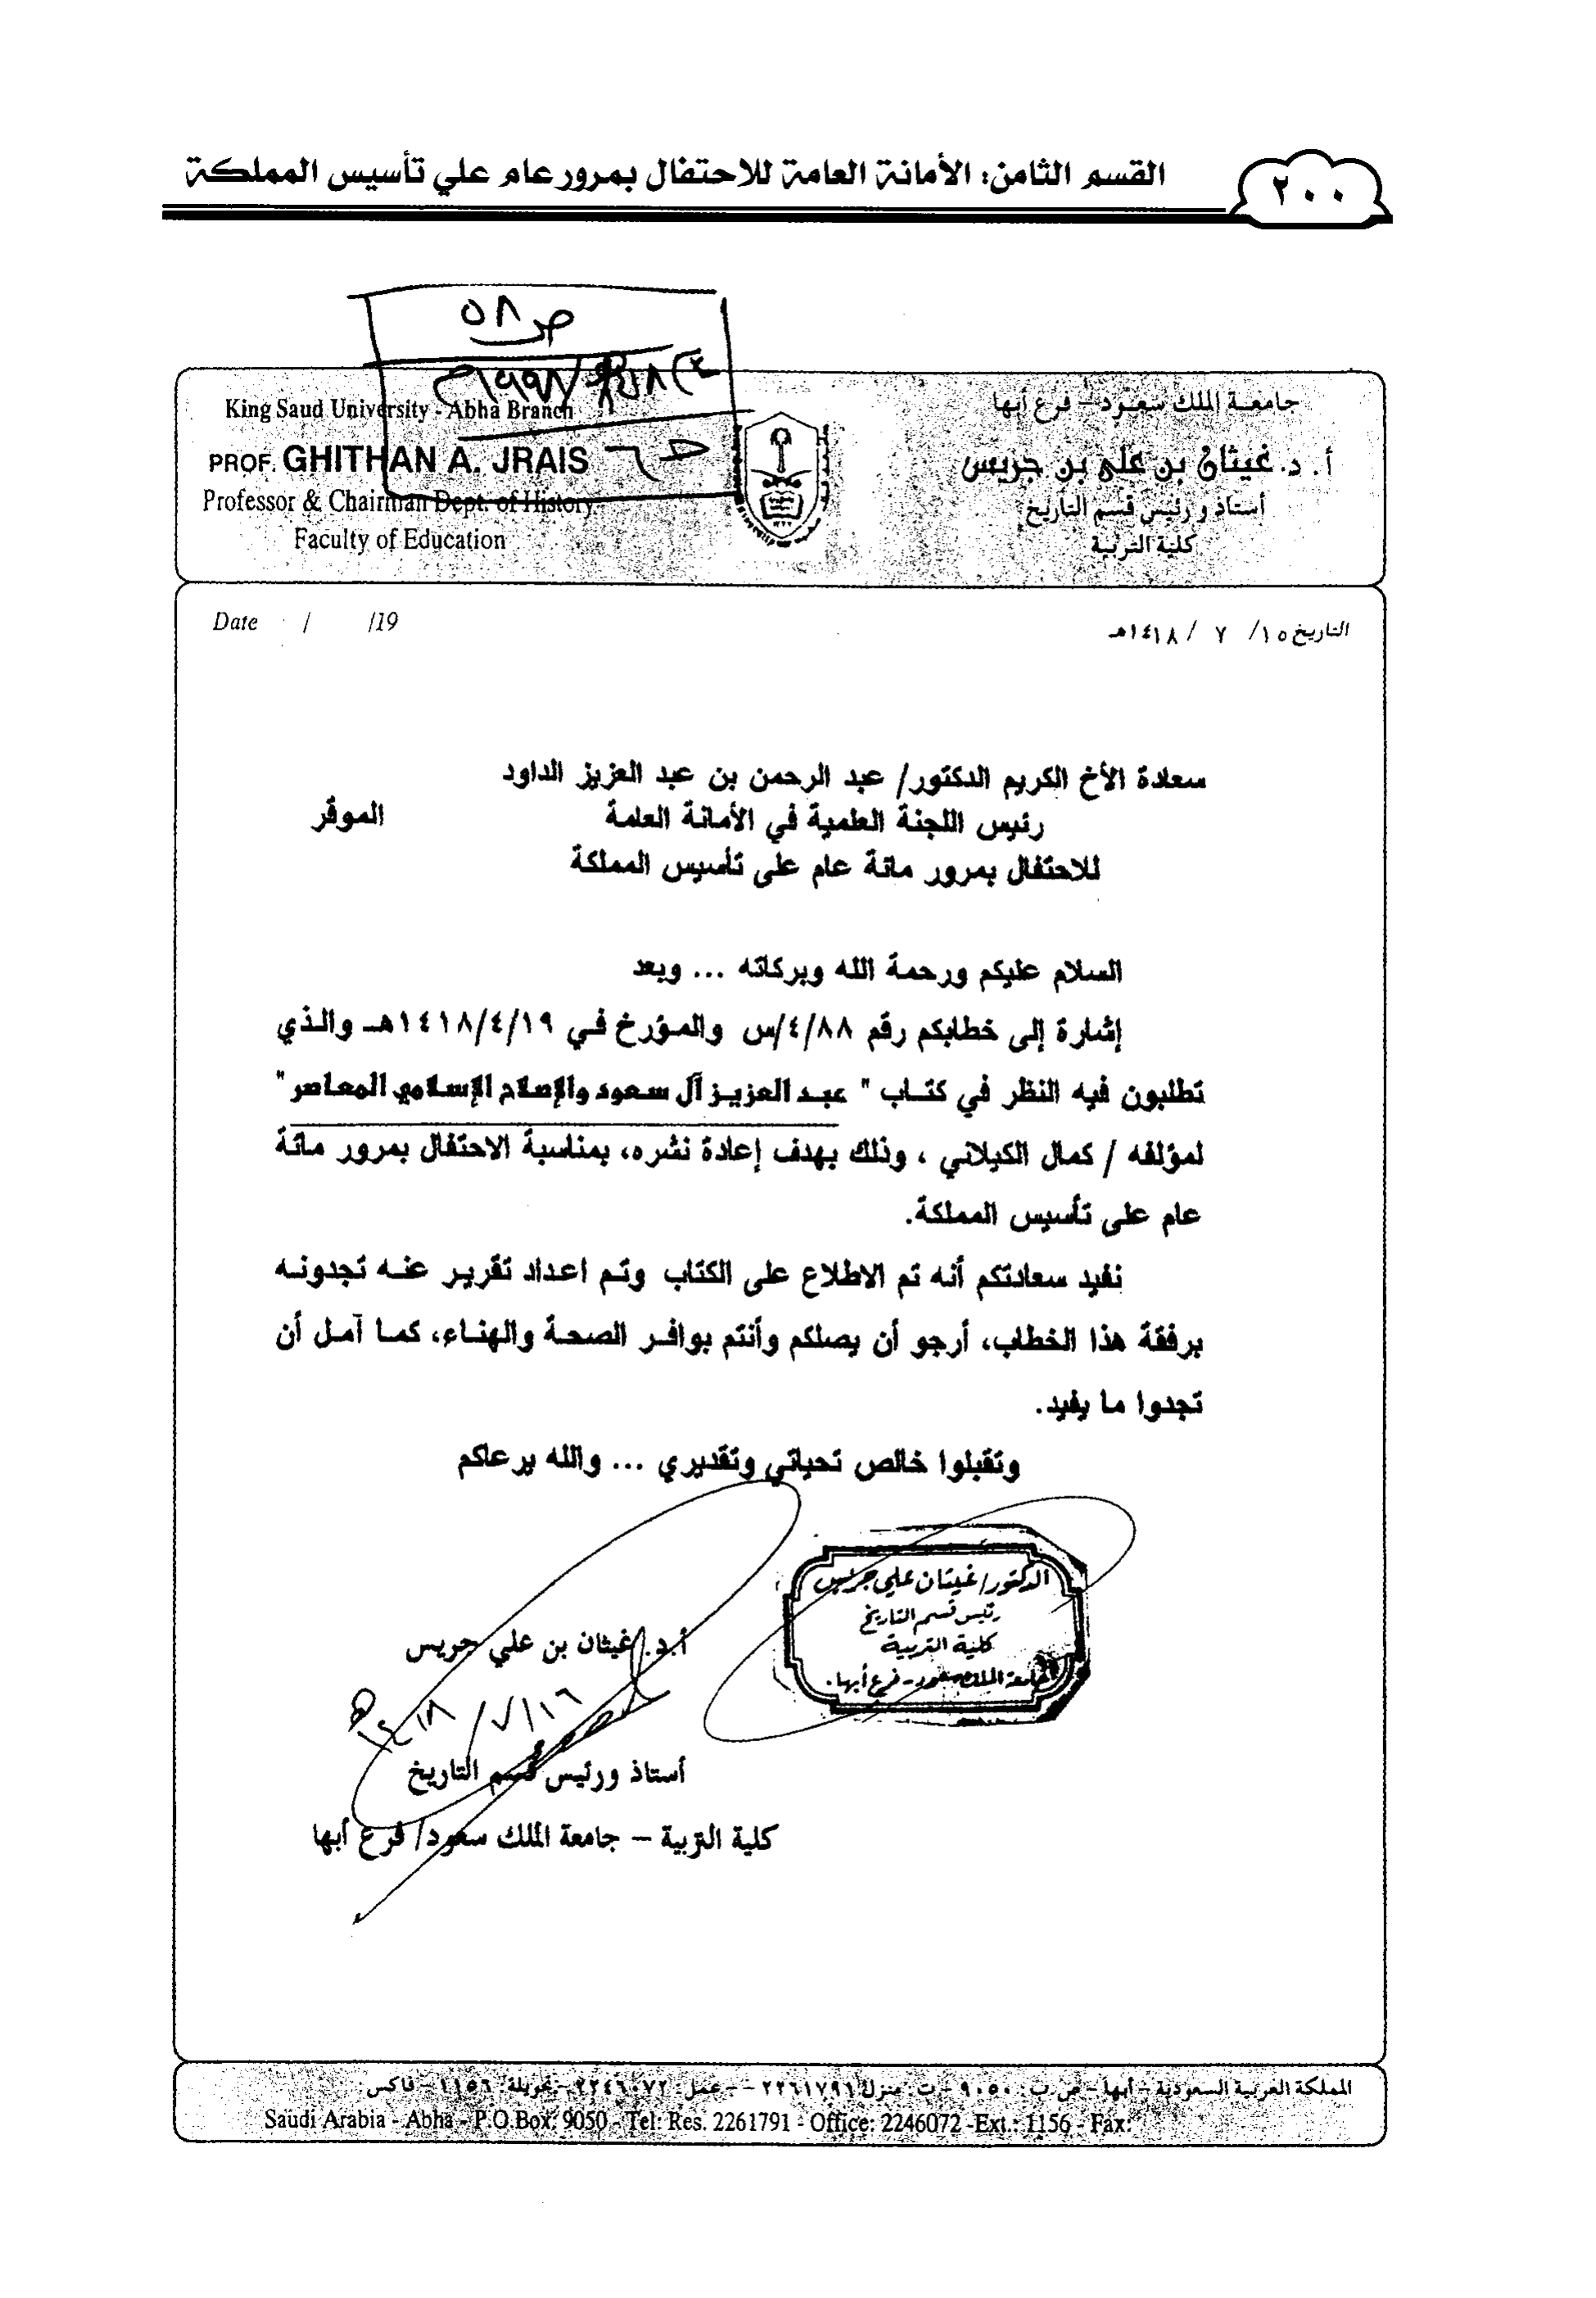 القسم الثامن: الأمانة العامة للاحتفال بمرور عام علي تأسيس المملكة
٢٠٠
ص ٥٨
King Saud University - Abha Branch
PROF. GHITHAN A. JRAIS
Professor & Chairman Dept. of History
Faculty of Education
جامعة الملك سعود - فرع أبها
أ. د. غيثان بن علي بن جريس
أستاذ و رئيس قسم التاريخ
كلية التربية
Date / /19
التاريخ ١٥/ ٧ /١٤١٨هـ
سعادة الأخ الكريم الدكتور/ عبد الرحمن بن عبد العزيز الداود
رئيس اللجنة العلمية في الأمانة العامة الموقر
للاحتفال بمرور مائة عام على تأسيس المملكة
السلام عليكم ورحمة الله وبركاته ... وبعد
إشارة إلى خطابكم رقم ٤/٨٨/س والمؤرخ في ١٤١٨/٤/١٩هـ والذي
تطلبون فيه النظر في كتاب " عبد العزيز آل سعود والإصلاح الإسلامي المعاصر"
لمؤلفه / كمال الكيلاني ، وذلك بهدف إعادة نشره، بمناسبة الاحتفال بمرور مائة
عام على تأسيس المملكة.
نفيد سعادتكم أنه تم الاطلاع على الكتاب وتم اعداد تقرير عنه تجدونه
برفقة هذا الخطاب، أرجو أن يصلكم وأنتم بوافر الصحة والهناء، كما آمل أن
تجدوا ما يفيد.
وتقبلوا خالص تحياتي وتقديري ... والله يرعاكم
الدكتور/ غيثان علي جريس
رئيس قسم التاريخ
كلية التربية
جامعة الملك سعود - فرع أبها.
أ.د. غيثان بن علي جريس
١٦/ ٧/ ١٤١٨هـ
أستاذ ورئيس قسم التاريخ
كلية التربية – جامعة الملك سعود/ فرع أبها
المملكة العربية السعودية - أبها - ص ب: ٩٠٥٠ - ت: منزل ٢٢٦١٧٩١ - - عمل: ٢٢٤٦٠٧٢ - تحويلة: ١١٥٦ - فاكس:
Saudi Arabia - Abha - P.O.Box: 9050 - Tel: Res. 2261791 - Office: 2246072 -Ext.: 1156 - Fax: